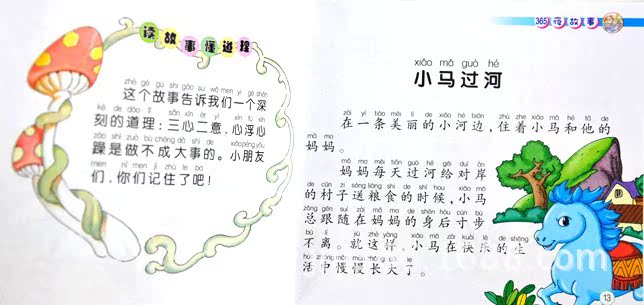 读故事懂道理
zhè gè gù shi gào su wǒ men yí gè shēn
这个故事告诉我们一个深
kè de dào lǐ sān xīn èr yì xīn fú xīn
刻的道理：三心二意，心浮心
zào shì zuò bù chéng dà shì de xiǎo péng yǒu
躁是做不成大事的。小朋友
men nǐ men jì zhù le ba
们，你们记住了吧！
365夜故事
xiǎo mǎ guò hé
小马过河
zài yì tiáo měi lì de xiǎo hé biān zhù zhe xiǎo mǎ hé tā de
在一条美丽的小河边，住着小马和他的
mā ma
妈妈。
mā ma měi tiān guò hé gěi duì àn
妈妈每天过河给对岸
de cūn zi sòng liáng shi de shí hou xiǎo mǎ
的村子送粮食的时候，小马
zǒng gēn suí zài mā ma de shēn hòu cùn bù
总跟随在妈妈的身后寸步
bù lí jiù zhè yàng xiǎo mǎ zài kuài lè de shēng
不离。就这样，小马在快乐的生
huó zhōng màn màn zhǎng dà le
活中慢慢长大了。
13